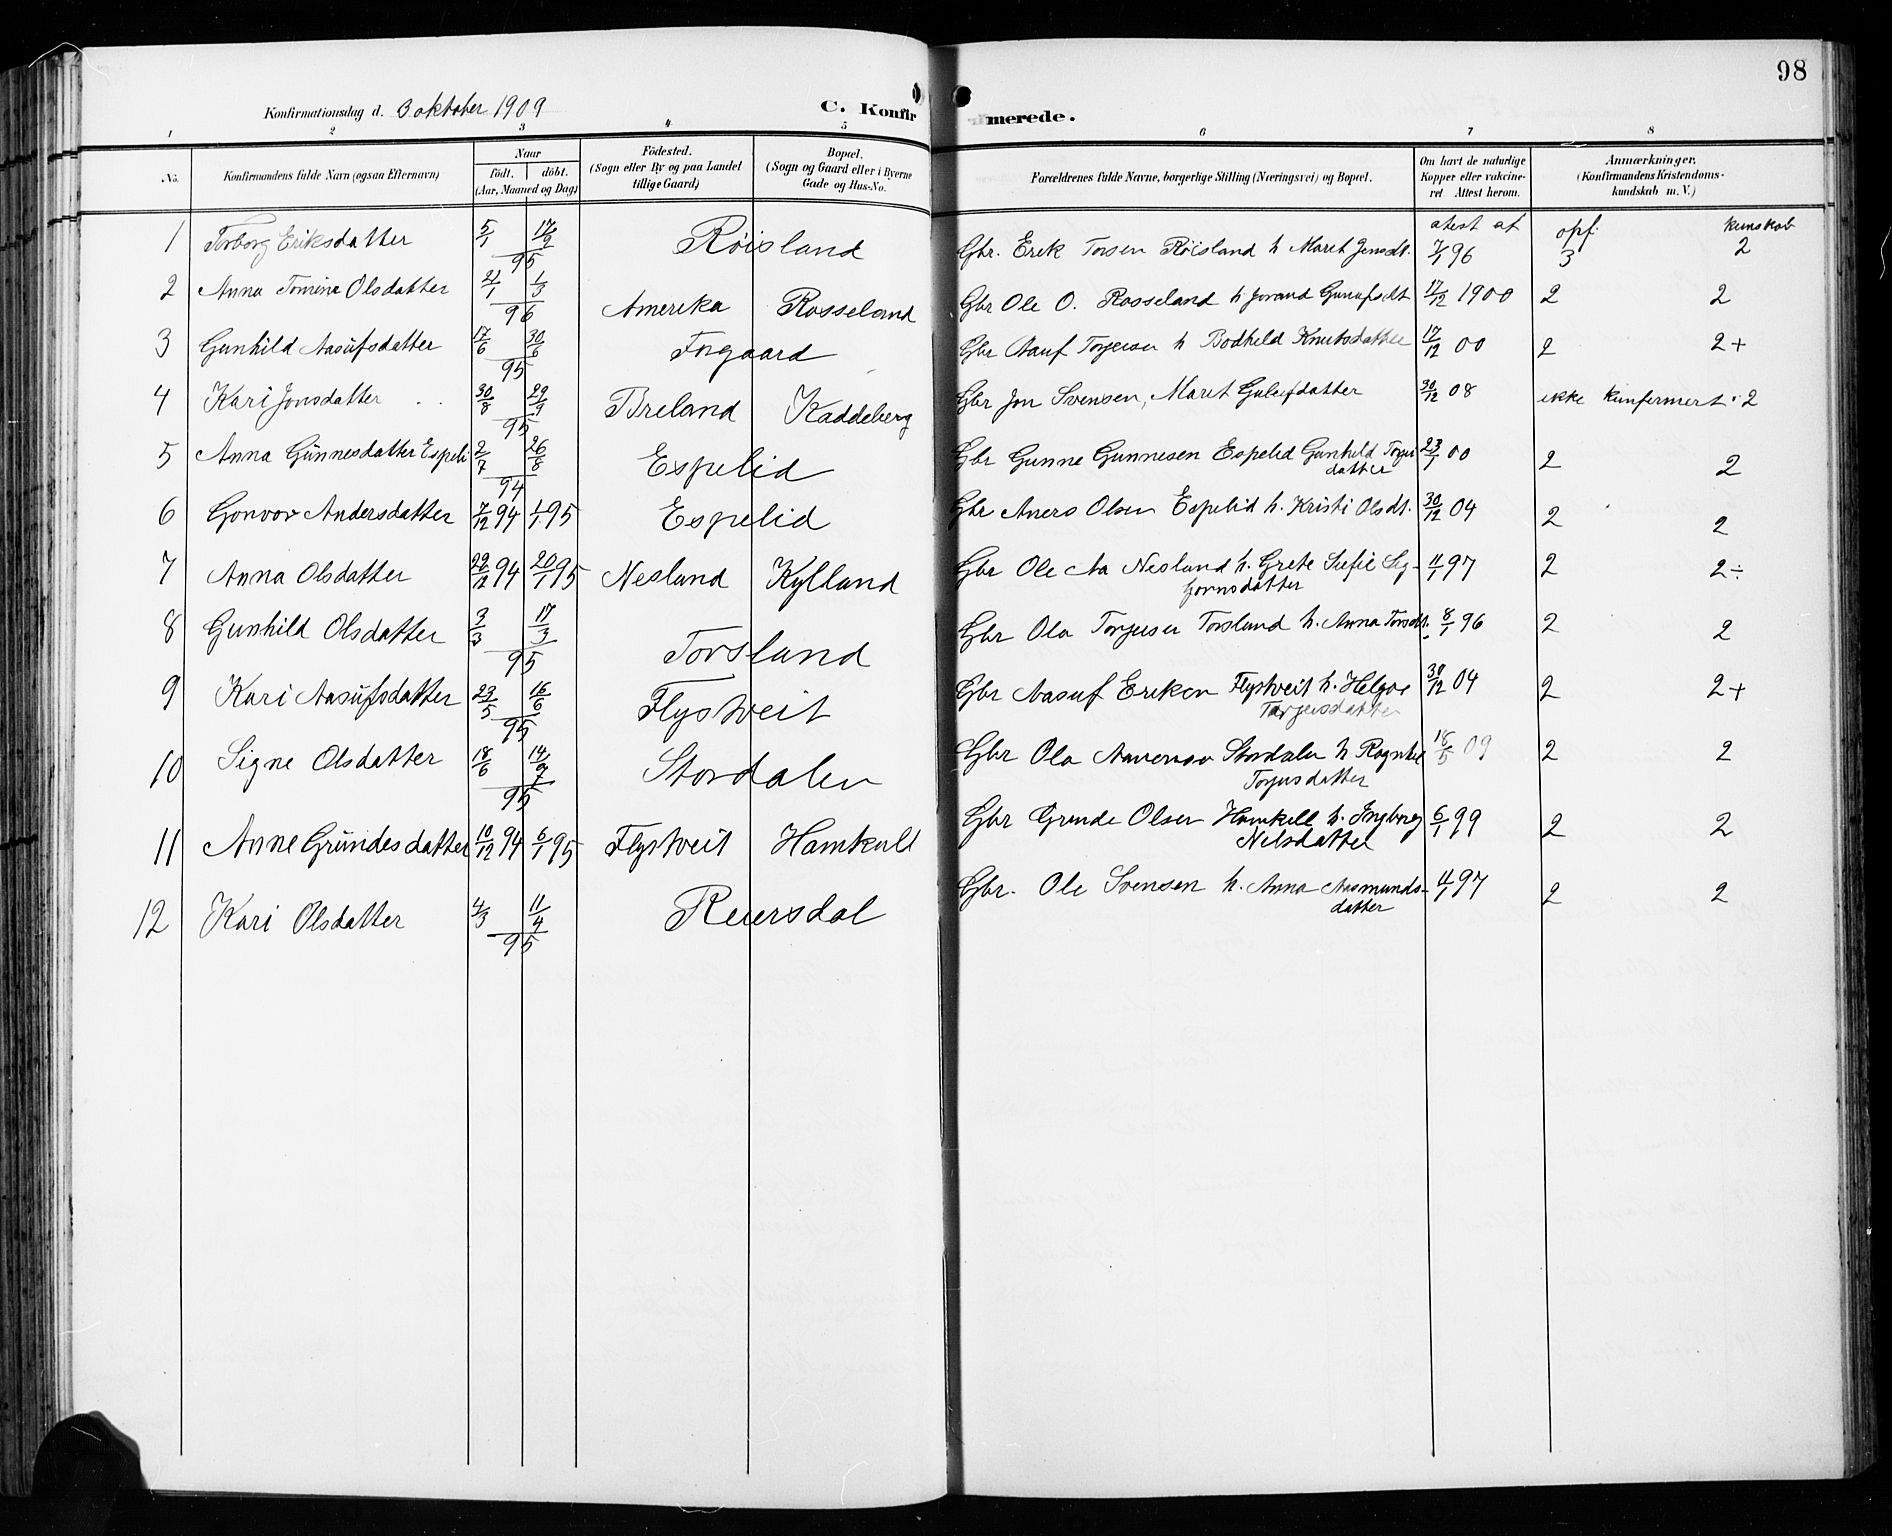 98
Konfirmationsdag d. 3 oktober 1909
C. Konfirmerede.
1 2 3 4 5 6 7 8
No. Konfirmandens fulde Navn (ogsaa Efternavn) Naar født. døbt. (Aar, Maaned og Dag) Fødested. (Sogn eller By og paa Landet tillige Gaard) Bopæl. (Sogn og Gaard eller i Byerne Gade og Hus-No. Forældrenes fulde Navne, borgerlige Stilling (Næringsvei) og Bopæl. Om havt de naturlige Kopper eller vakcineret Attest herom. Anmærkninger. (Konfirmandens Kristendomskundskab m. V.)
atest af opf. kunskab
1 Torborg Eriksdatter 5/1 17/2 95 Røisland Gbr. Erik Torsen Røisland h Maret Jensdt. 7/1 96 3 2
2 Anna Tomina Olsdatter 21/1 1/3 96 Amerika Rosseland Gbr Ole O. Rosseland h Jorand 17/12 1900 2 2
3 Gunhild Aasufsdatter 17/6 30/6 95 Fogaard Gbr Torjeisen h Bodheld Knutsdatter 17/12 00 2 2+
4 Kari Jonsdatter 30/8 29/9 95 Breland Kaddeberg Gbr Jon Svensen, Maret 30/12 08 ikke kunfermert 2
5 Anna Gunnesdatter Espeli 2/7 26/8 94 Espelid Gbr Gunne Gunnesen Espelid Gunhild Torjusdatter 23/1 00 2 2
6 Gonvor Andersdatter 7/12 94 1/1 95 Espelid Gbr Aners Olsen Espelid h. Kristi Olsdt. 30/12 04 2 2
7 Anna Olsdatter 22/12 94 20/1 95 Nesland Kylland Gbr Ole Aa Nesland h. Grete Sefie Sigjornsdatter 11/1 97 2 2÷
8 Gunhild Olsdatter 3/3 17/3 95 Torsland Gbr Ola Torjusen Torsland h. Anna Torsdt. 8/1 96 2 2
9 Kari Aasufsdatter 23/5 16/6 95 Flystveit Gbr Aasuf Eriksen Flystveit h. Helgoe Tarjeisdatter 30/12 04 2 2+
10 Signe Olsdatter 18/6 14/7 95 Stordalen Gbr Ola Stordalen h Torjusdatter 18/5 09 2 2
11 Anne Grundesdatter 10/12 94 6/1 95 Flystveit Hamkoll Gbr Grunde Olsen Homkoll h. Ingborg Nilsdatter 6/1 99 2 2
12 Kari Olsdatter 4/3 11/4 95 Reiersdal Gbr. Ole Svensen h. Anna Aasmundsdatter 11/1 97 2 2